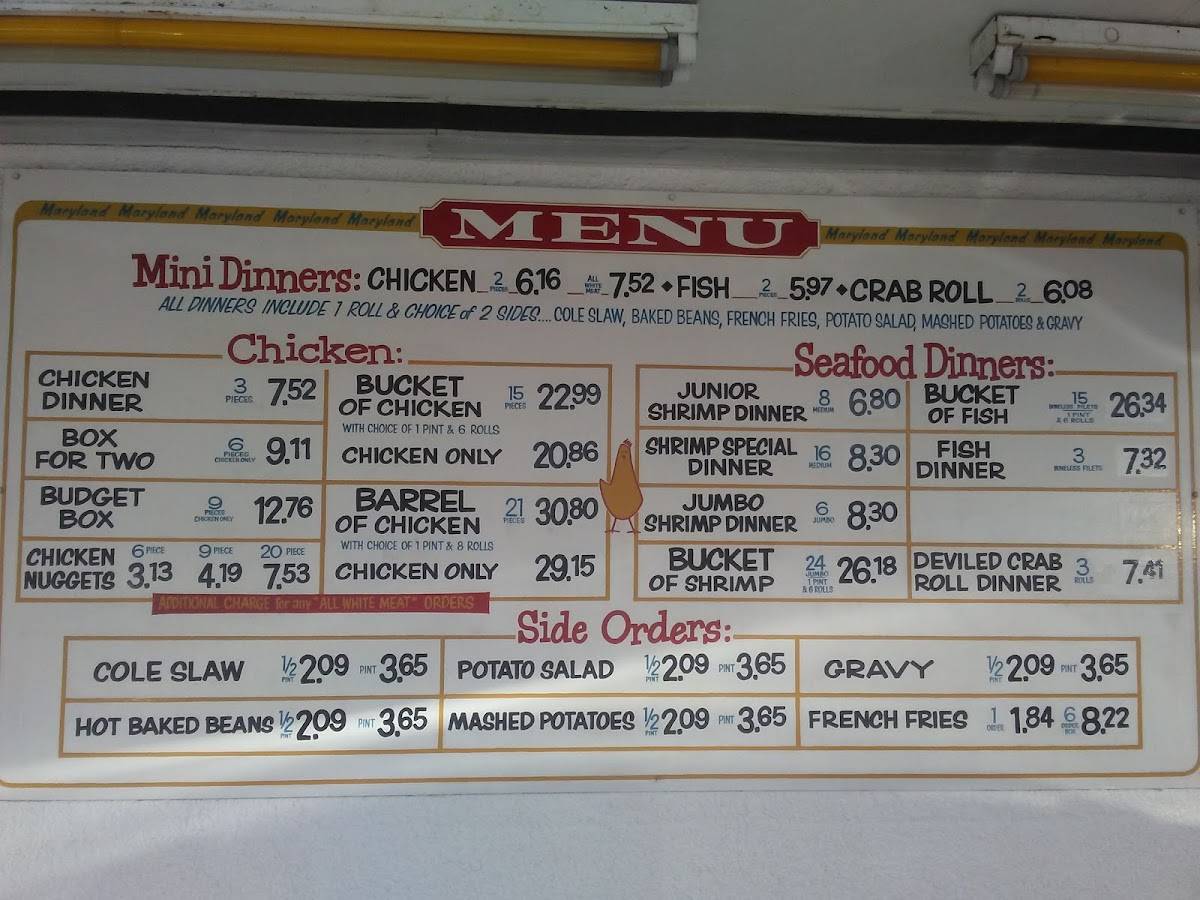 Maryland Maryland Maryland Maryland Maryland MENU Maryland Maryland Maryland Maryland Maryland
Mini Dinners: CHICKEN 2 PIECES 6.16 ALL WHITE MEAT 7.52 • FISH 2 PIECES 5.97 • CRAB ROLL 2 ROLLS 6.08
ALL DINNERS INCLUDE 1 ROLL & CHOICE of 2 SIDES.... COLE SLAW, BAKED BEANS, FRENCH FRIES, POTATO SALAD, MASHED POTATOES & GRAVY
Chicken:
CHICKEN DINNER 3 PIECES 7.52
BOX FOR TWO 6 PIECES CHICKEN ONLY 9.11
BUDGET BOX 9 PIECES CHICKEN ONLY 12.76
CHICKEN NUGGETS 6 PIECE 3.13 9 PIECE 4.19 20 PIECE 7.53
BUCKET OF CHICKEN 15 PIECES 22.99
WITH CHOICE OF 1 PINT & 6 ROLLS
CHICKEN ONLY 20.86
BARREL OF CHICKEN 21 PIECES 30.80
WITH CHOICE OF 1 PINT & 8 ROLLS
CHICKEN ONLY 29.15
ADDITIONAL CHARGE for any "ALL WHITE MEAT" ORDERS
Seafood Dinners:
JUNIOR SHRIMP DINNER 8 MEDIUM 6.80
SHRIMP SPECIAL DINNER 16 MEDIUM 8.30
JUMBO SHRIMP DINNER 6 JUMBO 8.30
BUCKET OF SHRIMP 24 JUMBO 1 PINT & 6 ROLLS 26.18
BUCKET OF FISH 15 BONELESS FILETS 1 PINT & 6 ROLLS 26.34
FISH DINNER 3 BONELESS FILETS 7.32
DEVILED CRAB ROLL DINNER 3 ROLLS 7.41
Side Orders:
COLE SLAW 1/2 PINT 2.09 PINT 3.65
POTATO SALAD 1/2 PINT 2.09 PINT 3.65
GRAVY 1/2 PINT 2.09 PINT 3.65
HOT BAKED BEANS 1/2 PINT 2.09 PINT 3.65
MASHED POTATOES 1/2 PINT 2.09 PINT 3.65
FRENCH FRIES 1 ORDER 1.84 6 ORDER BOX 8.22